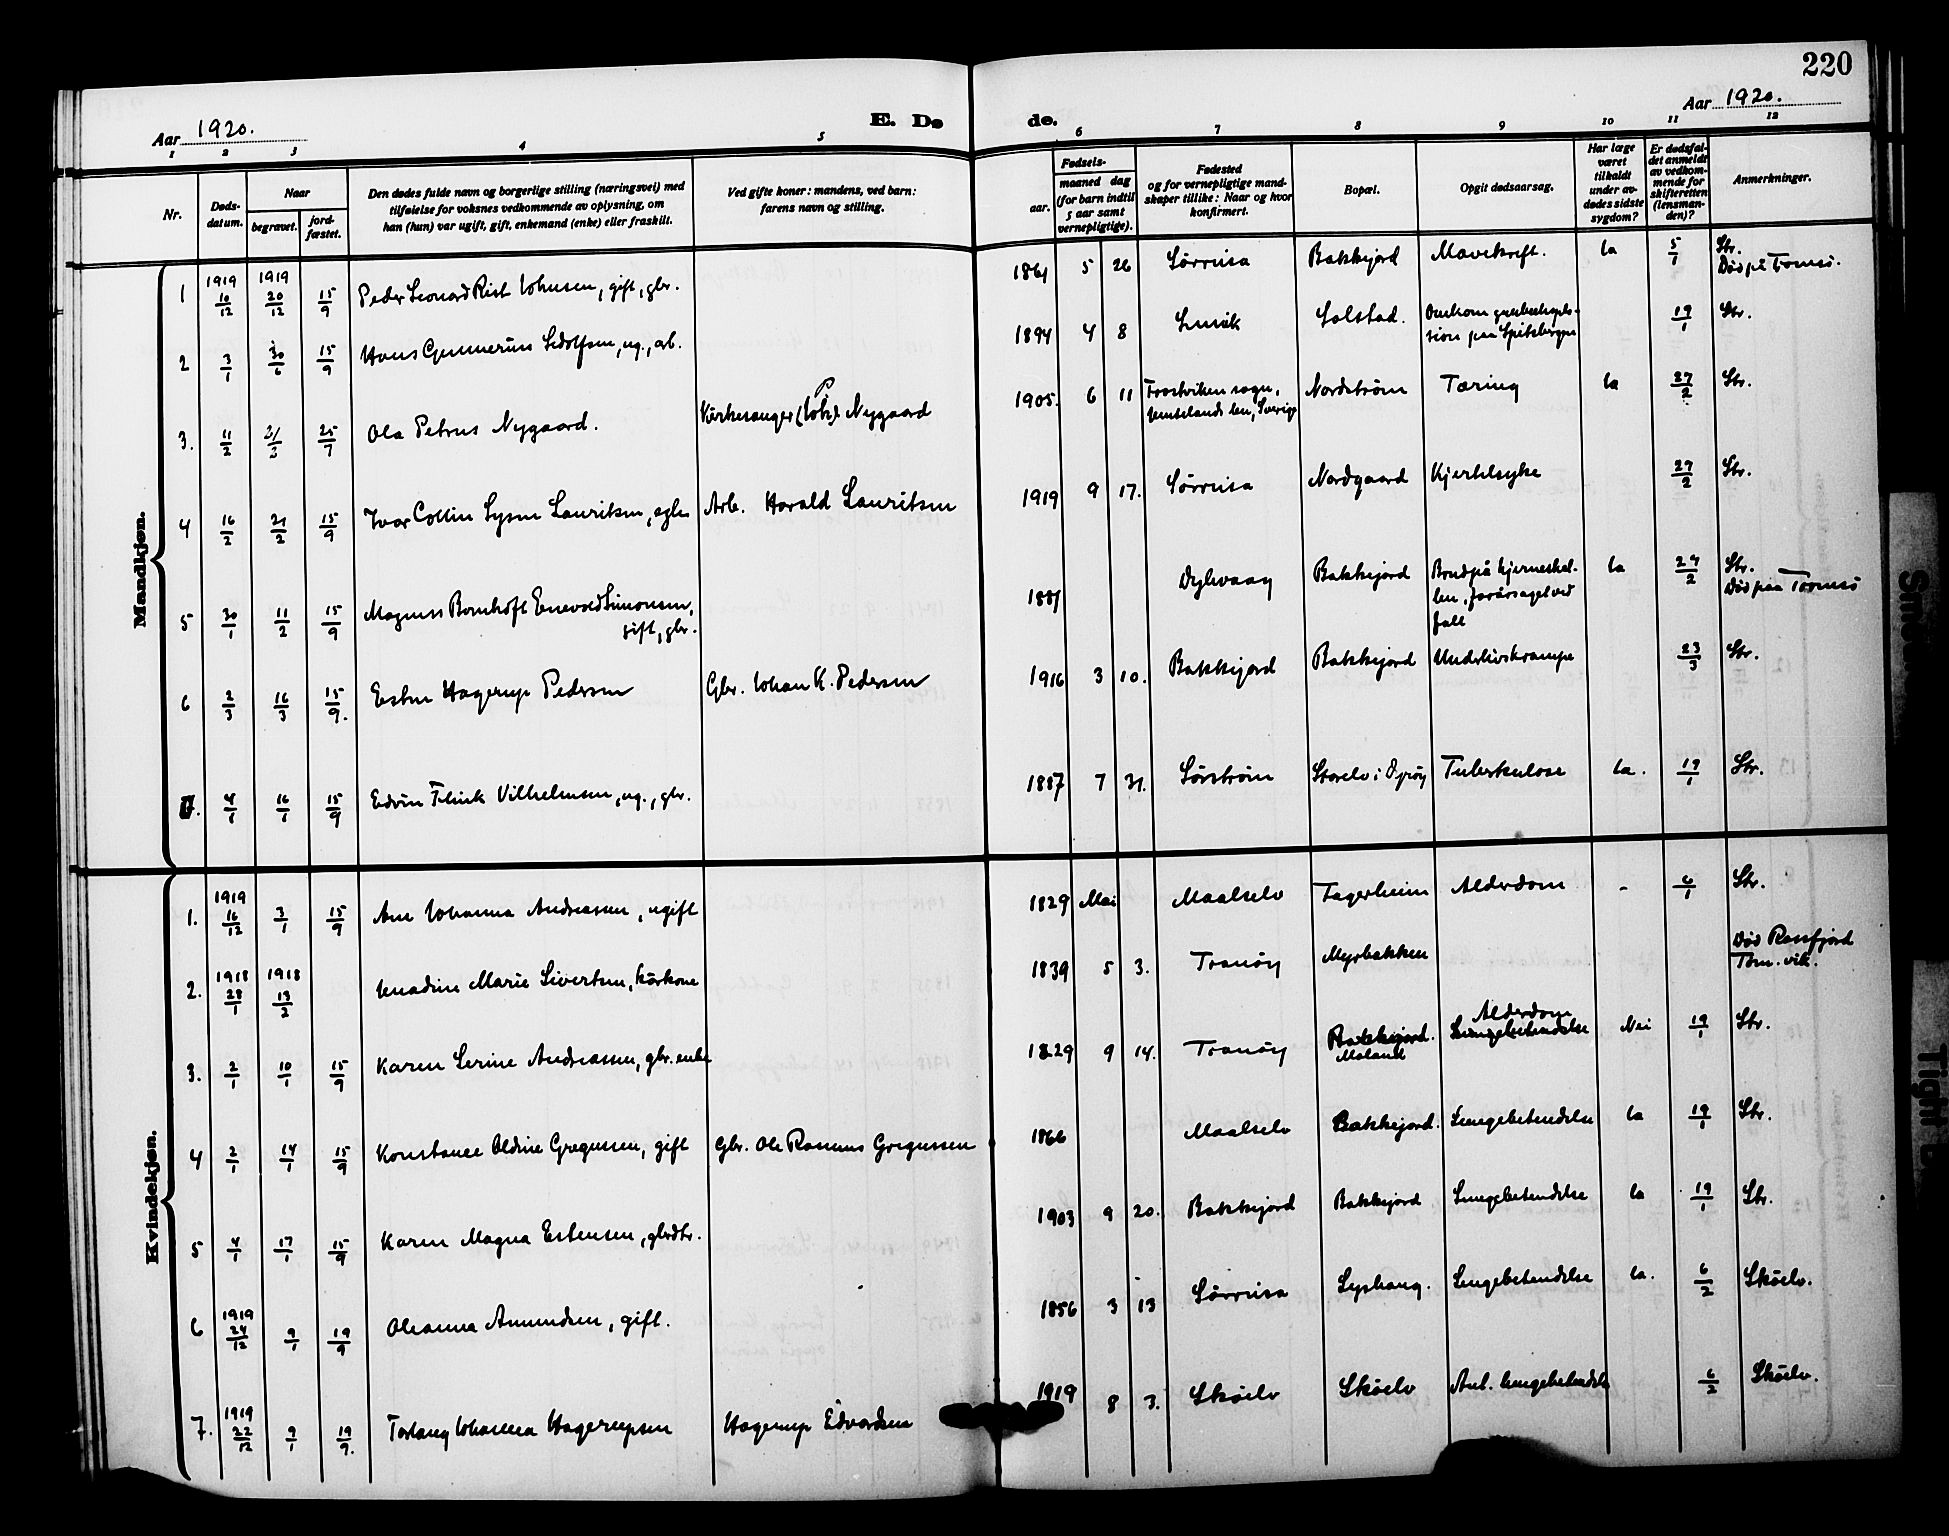 220
Aar 1920.
E. Dø
de.
Aar 1920.
1 2 3 4 5 6 7 8 9 10 11 12
Nr.
Døds-
datum.
Naar
begravet.
jord-
fæstet.
Den dødes fulde navn og borgerlige stilling (næringsvei) med
tilføielse for voksnes vedkommende av oplysning, om
han (hun) var ugift, gift, enkemand (enke) eller fraskilt.
Ved gifte koner: mandens, ved barn:
farens navn og stilling.
Fødsels-
aar.
maaned dag
(for barn indtil
5 aar samt
vernepligtige).
Fødested
og for vernepligtige mand-
skaper tillike: Naar og hvor
konfirmert.
Bopæl.
Opgit dødsaarsag.
Har læge
været
tilkaldt
under av-
dødes sidste
sygdom?
Er dødsfal-
det anmeldt
av vedkom-
mende for
skifteretten
(lensman-
den)?
Anmerkninger.
Mandkjøn.
1 1919 10/12 1919 20/12 15/9 Peder Leonard Rist Johnsen, gift, gbr. 1861 5 26 Sørreisa Bakkejord Mavekreft. Ja 5/1 Str.
Død på Tromsø.
2 3/1 30/6 15/9 Hans Gunnerius Sedolfsen, ug., arb. 1894 4 8 Lenvik Solstad. Omkom grubeeksplo-
sion paa Spitsbergen 19/1 Str.
3. 11/2 21/2 25/7 Ola Petrus Nygaard. Kirkesanger (Joh.) P. Nygaard 1905. 6 11 sogn,
len, Sverige Nordstrøm Tæring Ja 27/2 Str.
4 16/2 21/2 15/9 Ivar Collin Lauritsen, Arb. Harald Lauritsen 1919 9 17. Sørreisa Nordgaard Kjertelsyke 27/2 Str.
5 30/1 11/2 15/9 Magnus Bernhoft Enevold Simonsen,
gift, gbr. 1881 Dyrvaag Bakkejord Brud på hjerneskal-
len, forårsaget ved
fall Ja 27/2 Str.
Død paa Tromsø
6 2/3 16/3 15/9. Esten Hagerup Pedersen Gbr. Johan K. Pedersen 1916 3 10. Bakkejord Bakkejord Underlivskrampe 23/3 Str.
7. 4/1 16/1 15/9 Edvin Flink Vilhelmsen, ug., gbr. 1887 7 31. Sørstrøm Storelv i Dyrøy Tuberkulose Ja. 19/1 Str.
Kvindekjøn.
1. 1919 16/12 3/1 15/9 Ane Johanna Andreassen, ugift 1829 Mai Maalselv Fagerheim Alderdom - 6/1 Str.
2. 1918 28/1 1918 13/2 Marie Sivertsen, kårkone 1839 5 3. Tranøy Myrbakken Død Rossfjord
3. 2/1 10/1 15/9 Karen Serine Andreassen, gbr. enke 1829 9 14. Tranøy Bakkejord.
Moland Alderdom
Lungebetændelse Nei 19/1 Str.
4 2/1 14/1 15/9 Konstance Oldine Gregussen, gift Gbr. Ole Rasmus Gregussen 1866 Maalselv Bakkejord. Lungebetændelse Ja 19/1 Str.
5 4/1 17/1 15/9 Karen Magna Estensen, gbrdtr. 1903 9 20. Bakkejord Bakkejord Lungebetændelse Ja 19/1 Str.
6 1919 24/12 9/1 19/9 Oleanna Amundsen, gift. 1856 3 13 Sørreisa Lysbaug. Lungebetændelse Ja. 6/2 Skøelv.
7. 1919 22/12 9/1 19/9. Torlaug Johanna Hagerupsen Hagerup Edvardsen 1919 8 3. Skøelv Skøelv Ant. lungebetændelse 6/2 Skøelv.